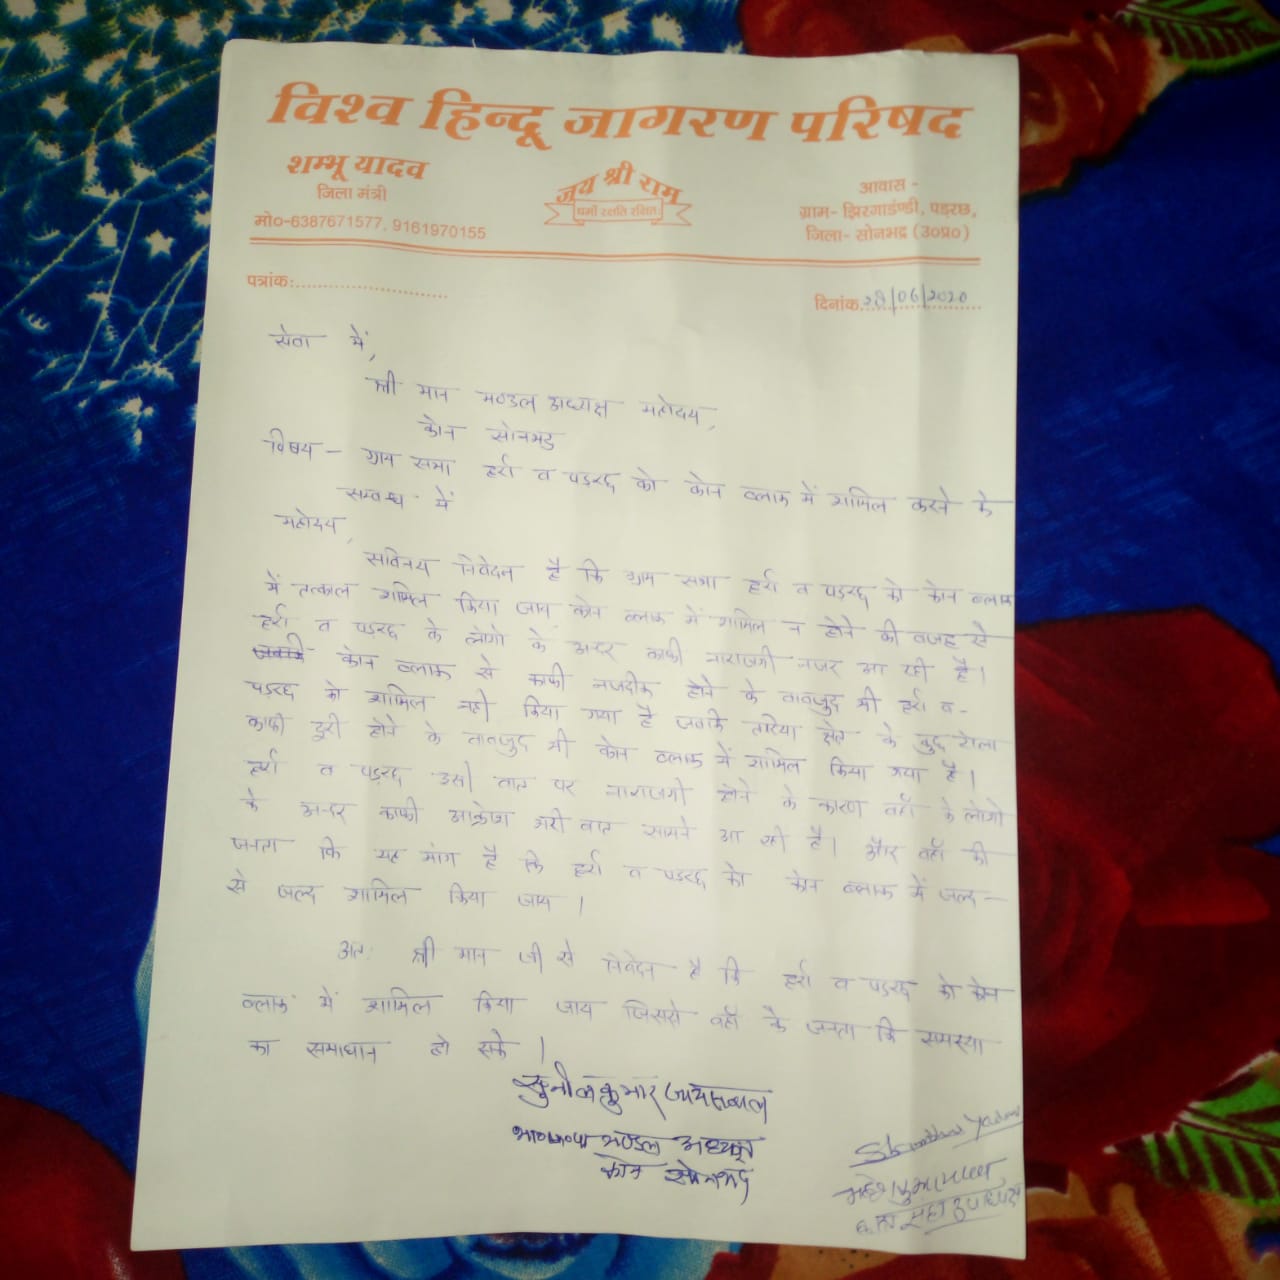 विश्व हिन्दू जागरण परिषद
शम्भू यादव
जिला मंत्री
मो०-6387671577, 9161970155
जय श्री राम
धर्मो रक्षति रक्षितः
आवास -
ग्राम- झिरगाडंण्डी, पड़रछ,
जिला- सोनभद्र (उ०प्र०)
पत्रांक:
दिनांक 28/06/2020
सेवा में,
श्री मान मण्डल अध्यक्ष महोदय,
कोन सोनभद्र
विषय - ग्राम सभा हर्रा व पड़रछ को कोन ब्लाक में शामिल करने के
सम्बन्ध में
महोदय,
सविनय निवेदन है कि ग्राम सभा हर्रा व पड़रछ को कोन ब्लाक
में तत्काल शामिल किया जाय, कोन ब्लाक में शामिल न होने की वजह से
हर्रा व पड़रछ के लोगो के अन्दर काफी नाराजगी नजर आ रही है।
कोन ब्लाक से काफी नजदीक होने के बावजुद भी हर्रा व-
पड़रछ को शामिल नही किया गया है जबकि के कुछ टोला
काफी दुरी होने के बावजुद भी कोन ब्लाक में शामिल किया गया है।
हर्रा व पड़रछ उसी बात पर नाराजगी होने के कारण वहाँ के लोगो
के अन्दर काफी आक्रोश भरी बात सामने आ रही है। और वहाँ की
जनता कि यह मांग है कि हर्रा व पड़रछ को कोन ब्लाक में जल्द-
से जल्द शामिल किया जाय।
अतः श्री मान जी से निवेदन है कि हर्रा व पड़रछ को कोन
ब्लाक में शामिल किया जाय जिससे वहाँ के जनता कि समस्या
का समाधान हो सके।
सुनील कुमार जायसवाल
भा०ज०पा मण्डल अध्यक्ष
कोन सोनभद्र
Shambhu Yadav